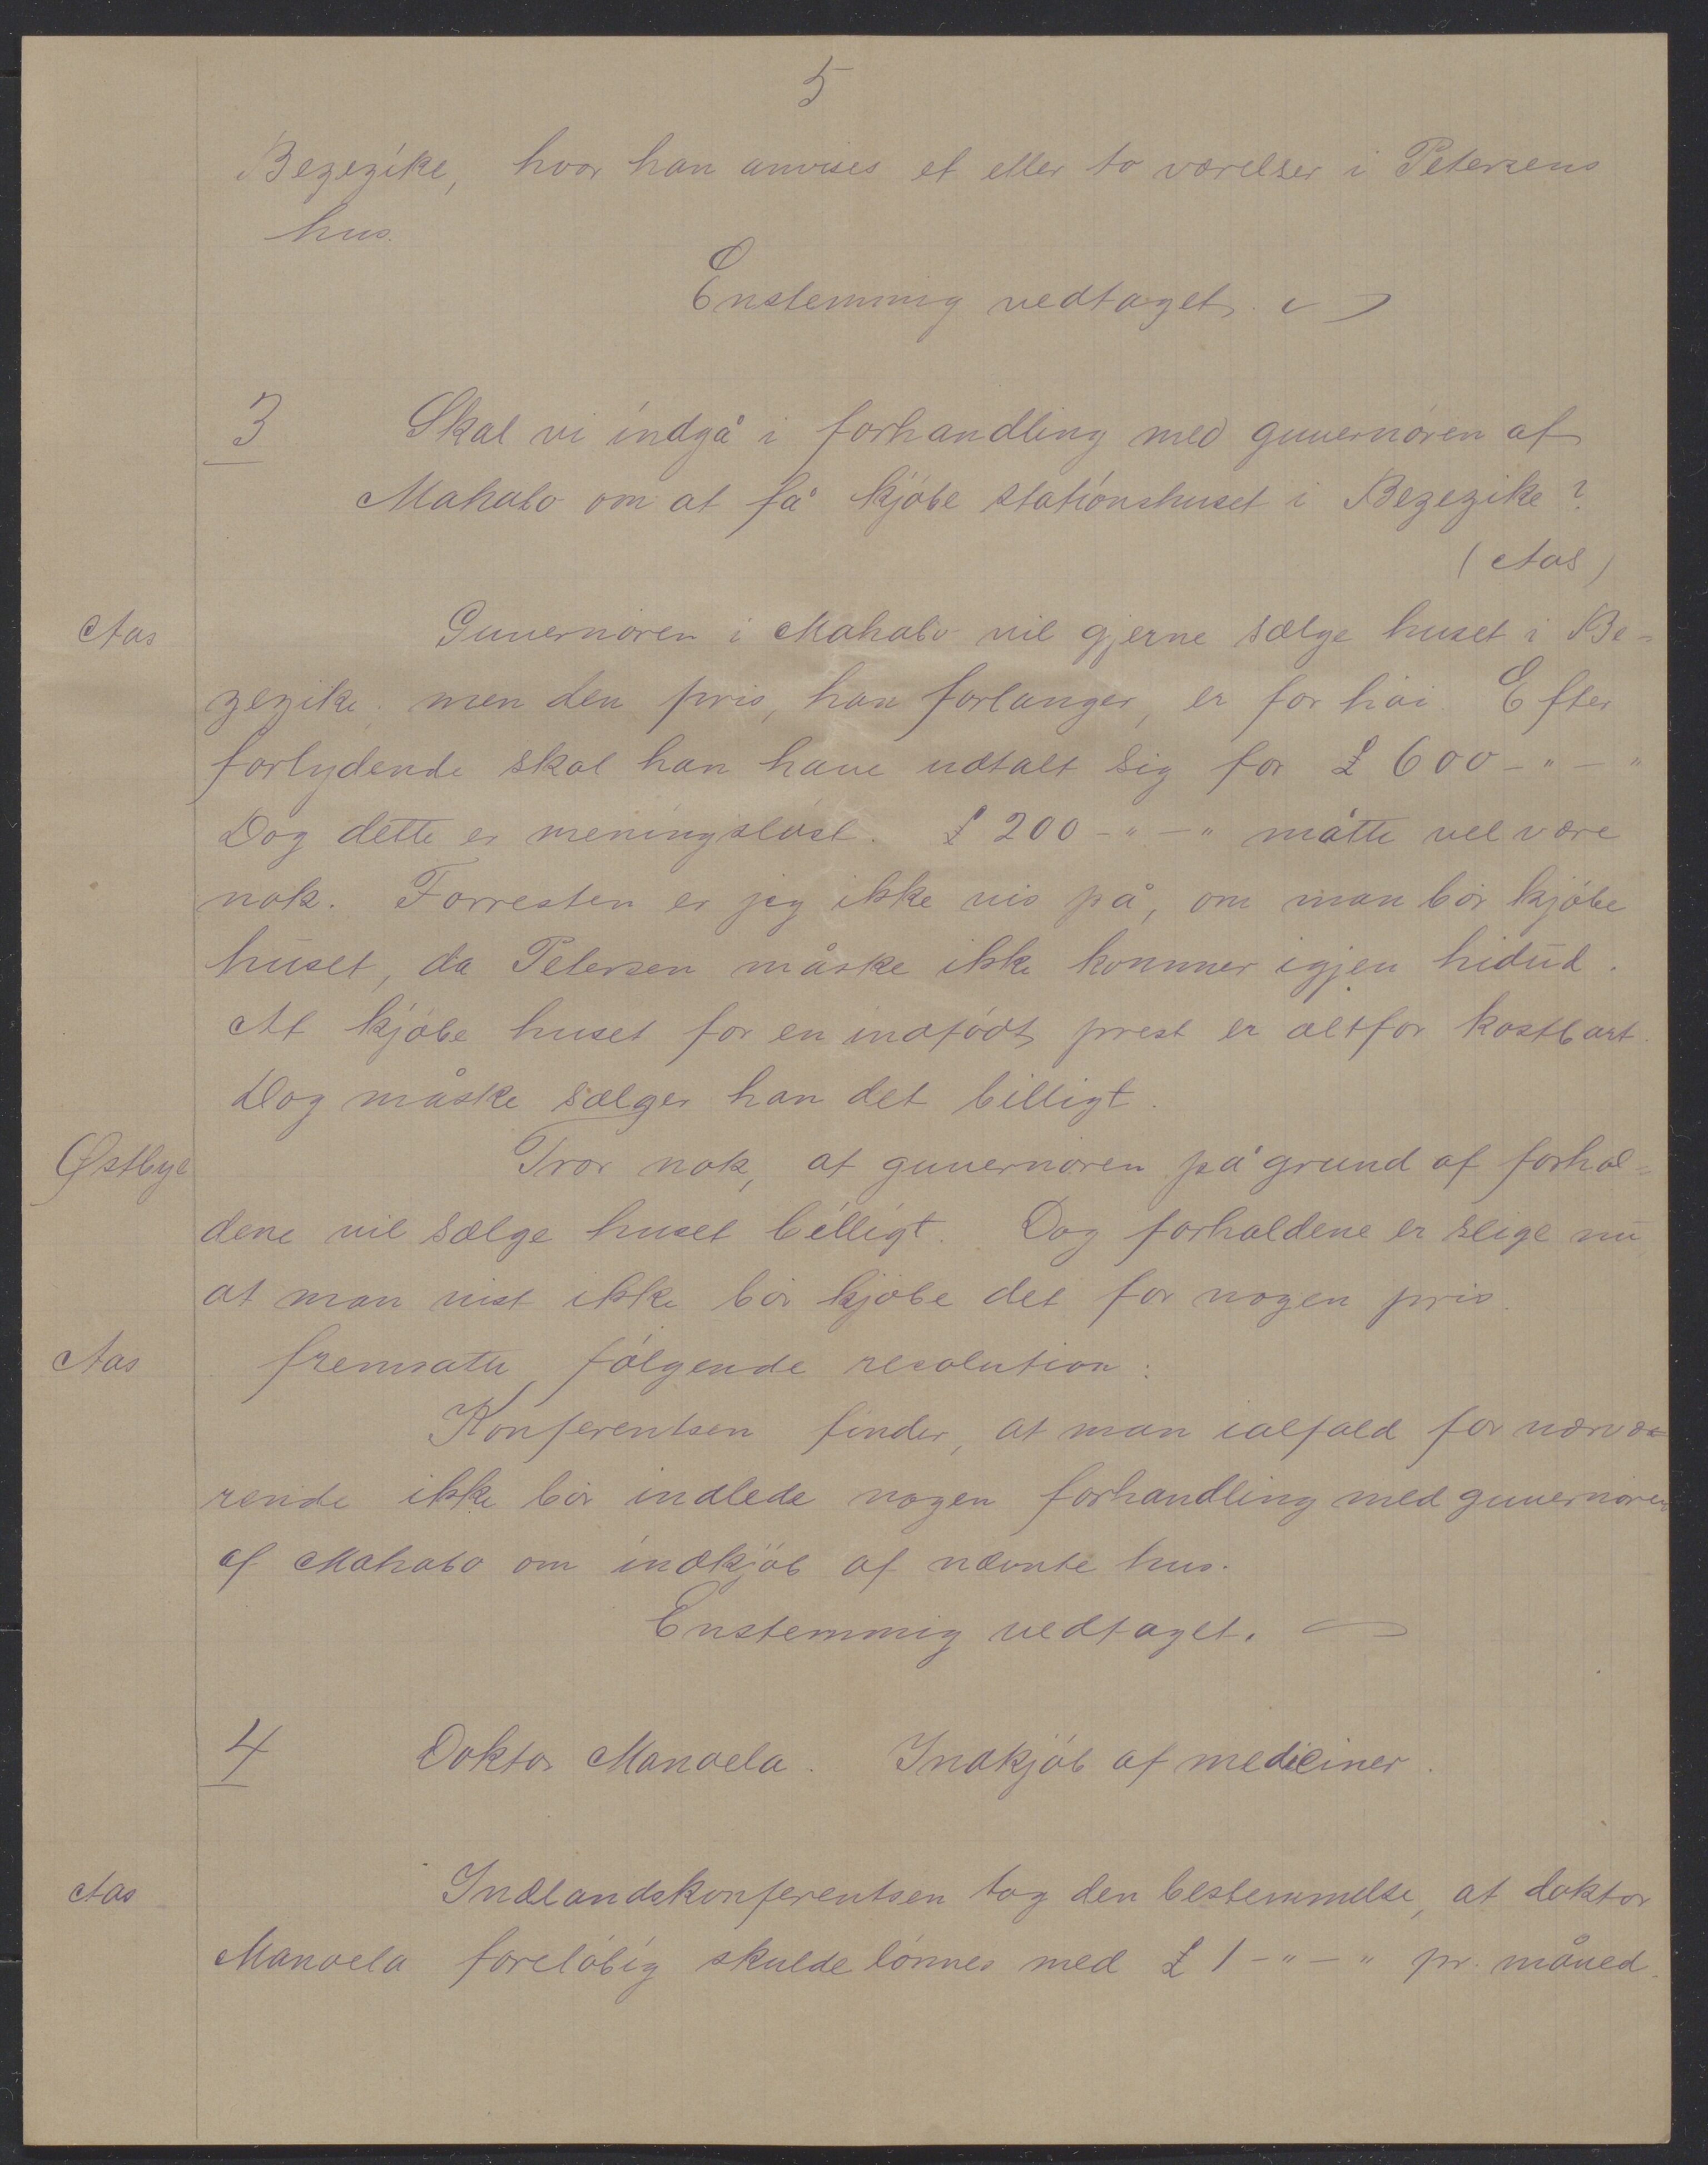 5
Bezezike, hvor han anvises et eller to værelser i Petersens
hus.
Enstemmig vedtaget.
3 Skal vi indgå i forhandling med guvernören af
Mahabo om at få kjöbe stationshuset i Bezezike?
(Aas)
Aas Guvernören i Mahabo vil gjerne sælge huset i Be-
zezike; men den pris, han forlanger, er for höi. Efter
forlydende skal han have udtalt sig for £ 600-"-"
Dog dette er meningslöst. £ 200-"-" måtte vel være
nok. Forresten er jeg ikke vis på, om man bör kjöbe
huset, da Petersen måske ikke kommer igjen hidud.
At kjöbe huset for en indfödt prest er altfor kostbart.
Dog måske sælger han det billigt.
Østbye Tror nok, at guvernören på grund af forhol-
dene vil sælge huset billigt. Dog forholdene er slige nu,
at man vist ikke bör kjöbe det for nogen pris.
Aas fremsatte fölgende resolution:
Konferentsen finder, at man ialfald for nærvæ-
rende ikke bör indlede nogen forhandling med guvernören
af Mahabo om indkjöb af nævnte hus.
Enstemmig vedtaget.
4 Doktor Manoela. Indkjöb af mediciner.
Aas Indlandskonferentsen tog den bestemmelse, at doktor
Manoela forelöbig skulde lönnes med £ 1-"-" pr. måned.